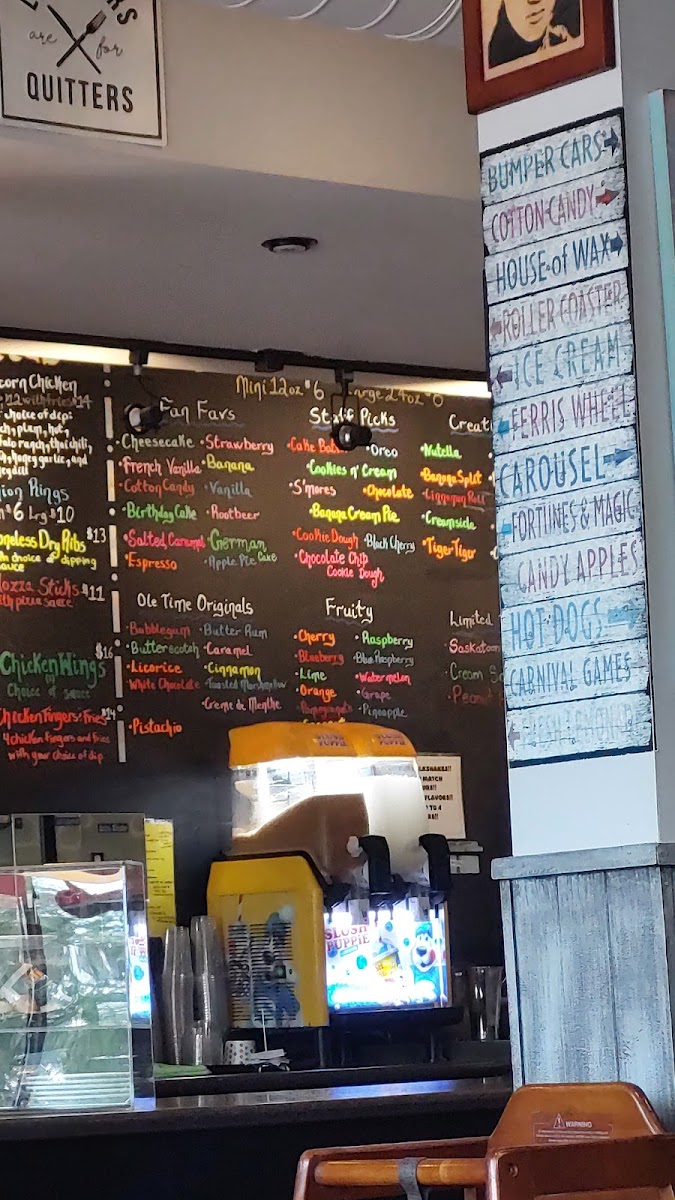 are for
QUITTERS
BUMPER CARS
COTTON CANDY
HOUSE of WAX
ROLLER COASTER
ICE CREAM
FERRIS WHEEL
CAROUSEL
FORTUNES & MAGIC
CANDY APPLES
HOT DOGS
CARNIVAL GAMES
FRESH LEMONADE
corn Chicken
12 with fries $14
choice of dip:
plum, hot,
ranch, thai chili,
honey garlic, and
ion Rings
$6 Lrg $10
oneless Dry Ribs $13
choice of dipping
sauce
ozza Sticks $11
with pizza sauce
Chicken Wings $16
Choice of sauce
Chicken Fingers & Fries $14
4 chicken fingers and fries
with your choice of dip
Mini 12oz $6 arge 24oz $
Fan Favs
•Cheesecake •Strawberry
•French Vanilla •Banana
•Cotton Candy •Vanilla
•Birthday Cake •Rootbeer
•Salted Caramel •German Cake
•Espresso •Apple Pie
Staff Picks
•Cake Bat •Oreo
•Cookies n' Cream
•S'mores •Chocolate
•Banana Cream Pie
•Cookie Dough •Black Cherry
•Chocolate Chip
Cookie Dough
Creat
•Nutella
•Banana Split
•Cinnamon Roll
•Creamsicle
•Tiger Tiger
Ole Time Originals
•Bubblegum •Butter Rum
•Butterscotch •Caramel
•Licorice •Cinnamon
•White Chocolate •Toasted Marshmallow
•Creme de Menthe
•Pistachio
Fruity
•Cherry •Raspberry
•Blueberry •Blue Raspberry
•Lime •Watermelon
•Orange •Grape
•Pomegranate •Pineapple
Limited
•Saskatoon
•Cream So
•Peanut
SLUSH PUPPIE
LKSHAKES!!
MATCH
FLAVORS!!
TO 4
SLUSH
PUPPIE
WARNING